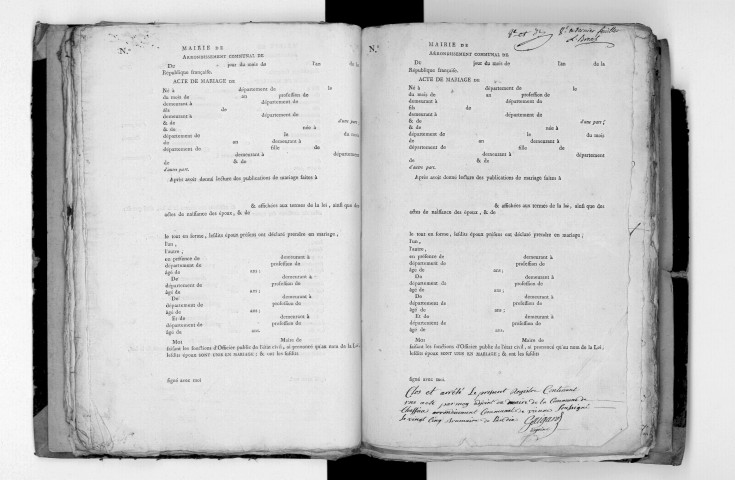 N.°
MAIRIE DE
ARRONDISSEMENT COMMUNAL DE
De jour du mois de l'an de la
République françaiſe.
ACTE DE MARIAGE DE
Né à département de le
du mois de an profeſſion de
demeurant à département de
fils de
demeurant à département de
& de d'une part;
& de née à
département de le du mois
de an demeurant à
département de fille de
demeurant à département
de & de
d'autre part.
Après avoir donné lecture des publications de mariage faites à
& affichées aux termes de la loi, ainſi que des
actes de naiſſance des époux, & de
le tout en forme, leſdits époux préſens ont déclaré prendre en mariage;
l'un,
l'autre,
en préſence de demeurant à
département de profeſſion de
âgé de ans;
De demeurant à
département de profeſſion de
âgé de ans;
De demeurant à
département de profeſſion de
âgé de ans;
Et de demeurant à
département de profeſſion de
âgé de ans.
Moi Maire de
faiſant les fonctions d'Officier public de l'état civil, ai prononcé qu'au nom de la Loi,
leſdits époux SONT UNIS EN MARIAGE; & ont les ſuſdits
ſigné avec moi
N.°
MAIRIE DE
ARRONDISSEMENT COMMUNAL DE
De jour du mois de l'an de la
République françaiſe.
ACTE DE MARIAGE DE
Né à département de le
du mois de an profeſſion de
demeurant à département de
fils de
demeurant à département de
& de d'une part;
& de née à
département de le du mois
de an demeurant à
département de fille de
demeurant à département
de & de
d'autre part.
Après avoir donné lecture des publications de mariage faites à
& affichées aux termes de la loi, ainſi que des
actes de naiſſance des époux, & de
le tout en forme, leſdits époux préſens ont déclaré prendre en mariage;
l'un,
l'autre,
en préſence de demeurant à
département de profeſſion de
âgé de ans;
De demeurant à
département de profeſſion de
âgé de ans;
De demeurant à
département de profeſſion de
âgé de ans;
Et de demeurant à
département de profeſſion de
âgé de ans.
Moi Maire de
faiſant les fonctions d'Officier public de l'état civil, ai prononcé qu'au nom de la Loi,
leſdits époux SONT UNIS EN MARIAGE; & ont les ſuſdits
ſigné avec moi
Clos et arrêté le present Registre Contenant
acte par moy adjoint au maire de la Commune de
arrondissement Communal de vienne soussigné
le vingt Cinq